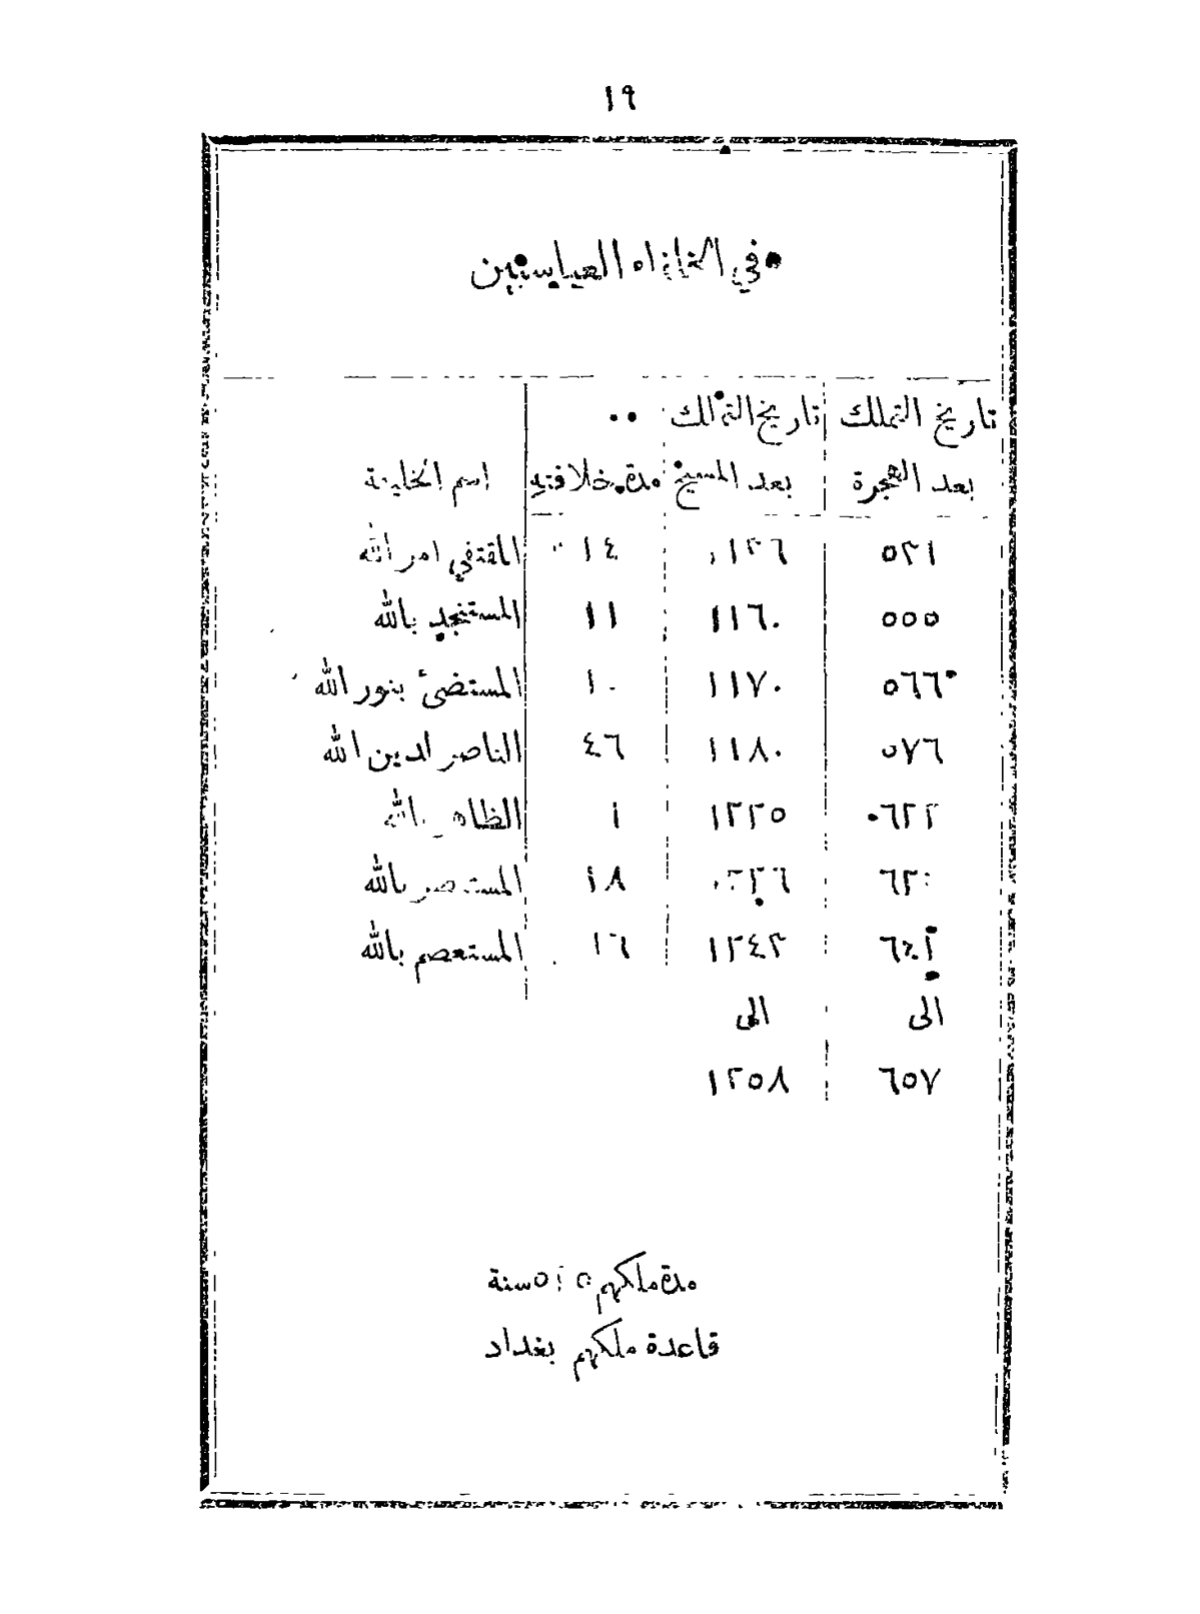 ١٩
في الخلفاء العباسيين
تاريخ التملك تاريخ التملك
بعد الهجرة بعد المسيح مدة خلافته اسم الخليفة
٥٢١ ١٤ المقتفي امر الله
٥٥٥ ١١٦٠ ١١ المستنجد بالله
٥٦٦ ١١٧٠ ١٠ المستضئ بنور الله
٥٧٦ ١١٨٠ ٤٦ الناصر لدين الله
٦٢٢ ١٢٢٥ ١ الظاهر بالله
١٨ المستنصر بالله
١٢٤٢ ١٦ المستعصم بالله
الى الى
٦٥٧ ١٢٥٨
مدة ملكهم سنة
قاعدة ملكهم بغداد